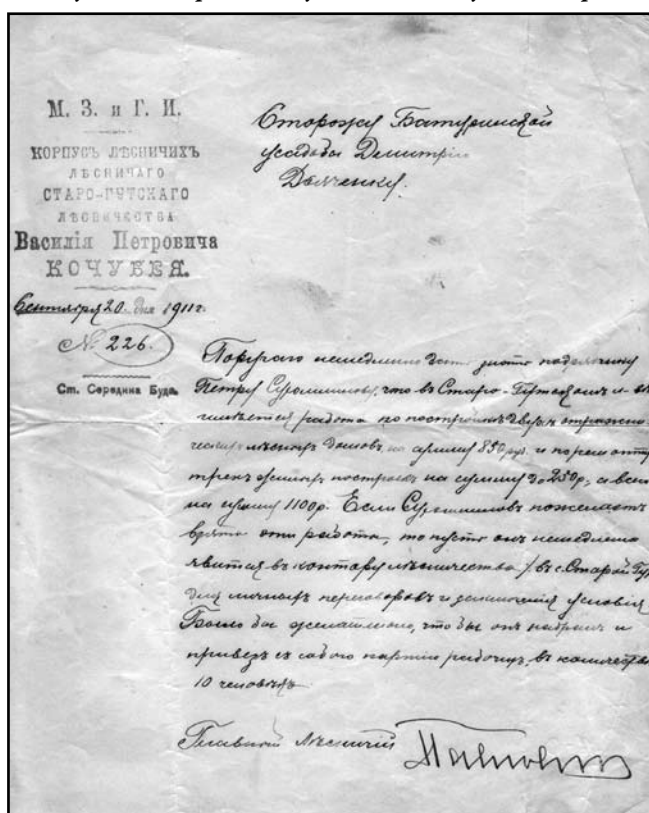 М. З. и Г. И.
КОРПУСЪ ЛѢСНИЧИХЪ
ЛѢСНИЧАГО
СТАРО-ГУТСКАГО
ЛѢСНИЧЕСТВА
Василія Петровича
КОЧУБЕЯ.
Сентября 20 дня 1911 г.
№ 226.
Ст. Середина Буда.
Сторожу Батуринской
усадьбы Демитрію
Дяченку.
Поручаю немедленно дать знать подрядчику
Петру Суромшинову, что въ Старо-Гутскомъ
имѣется работа по постройкѣ двухъ
лѣсныхъ домовъ, на сумму 850 руб. и
трехъ жилыхъ построекъ на сумму до 250 р, а всего
на сумму 1100 р. Если пожелаетъ
взять эти работы, то пусть онъ немедленно
явится въ контору лѣсничества / въ с. Старой
для личныхъ переговоровъ и заключенія условія
Было бы желательно, что бы онъ набралъ и
привезъ съ собою партію рабочихъ, въ количествѣ
10 человѣкъ
Главный Лѣсничій